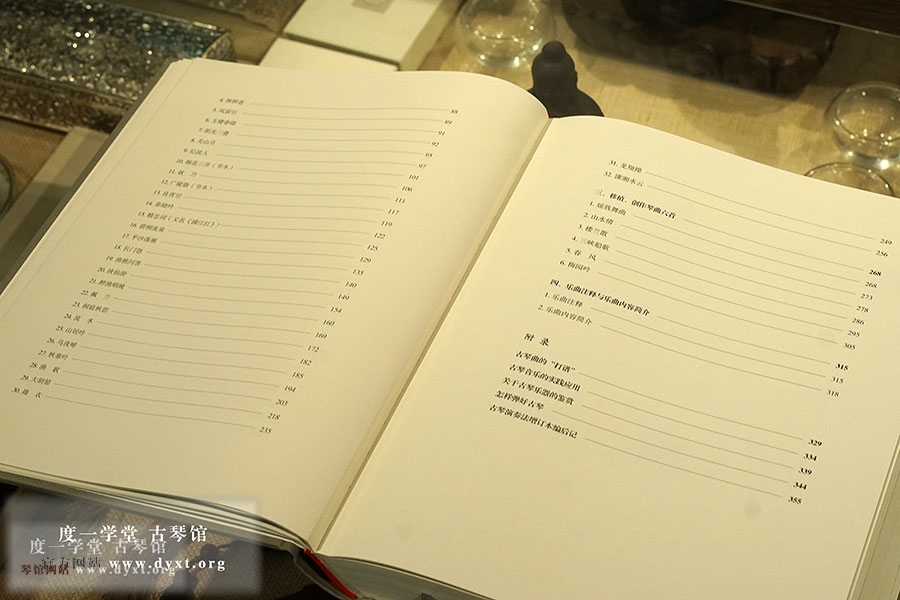 4. 神释意 88
5. 风雷引 89
6. 玉楼春晓 91
7. 阳关三叠 92
8. 关山月 95
9. 忆故人 97
10. 梅花三弄（书本） 101
11. 欸 乃 106
12. 广陵散（书本） 111
13. 良宵引 117
14. 春晓吟 119
15. 精忠词（又名《满江红》） 122
16. 碧涧流泉 125
17. 平沙落雁 129
18. 长门怨 135
19. 渔樵问答 140
20. 挟仙游 149
21. 醉渔唱晚 154
22. 佩 兰 160
23. 洞庭秋思 169
24. 流 水 172
25. 山居吟 182
26. 乌夜啼 185
27. 秋塞吟 194
28. 渔 歌 203
29. 大胡笳 218
30. 捣 衣 235
31. 龙翔操 249
32. 潇湘水云 256
三、移植、创作琴曲六首 268
1. 瑶族舞曲 268
2. 山水情 273
3. 楼兰散 278
4. 三峡船歌 286
5. 春 风 295
6. 梅园吟 305
四、乐曲注释与乐曲内容简介 315
1. 乐曲注释 315
2. 乐曲内容简介 318
附 录
古琴曲的“打谱” 329
古琴音乐的实践应用 334
关于古琴乐器的鉴赏 339
怎样弹好古琴 344
古琴演奏法增订本编后记 355
度一学堂 古琴馆
度一学堂 古琴馆
官方网站 www.dyxt.org
琴馆网站 www.dyxt.org